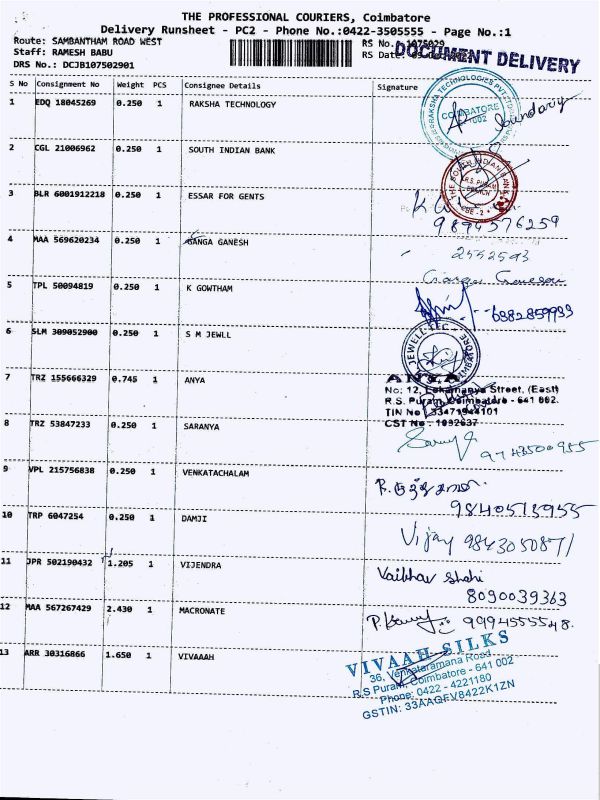 THE PROFESSIONAL COURIERS, Coimbatore
Delivery Runsheet - PC2 - Phone No.:0422-3505555 - Page No.:1
Route: SAMBANTHAM ROAD WEST
RS No. 1075029
DOCUMENT DELIVERY
Staff: RAMESH BABU
RS Date:
DRS No.: DCJB107502901
S No Consignment No Weight PCS Consignee Details Signature
1 EDQ 18045269 0.250 1 RAKSHA TECHNOLOGY
COIMBATORE
2 CGL 21006962 0.250 1 SOUTH INDIAN BANK
THE SOUTH INDIAN BANK
R.S. PURAM
BRANCH
3 BLR 6001912218 0.250 1 ESSAR FOR GENTS
9894576259
4 MAA 569620234 0.250 1 GANGA GANESH
2552593
5 TPL 50094819 0.250 1 K GOWTHAM
6382859933
6 SLM 309052900 0.250 1 S M JEWLL
7 TRZ 155666329 0.745 1 ANYA
ANYA
No: 12, Lokamanya Street, (East)
R.S. Puram, Coimbatore - 641 002.
TIN No : 33471944101
CST No : 1092637
8 TRZ 53847233 0.250 1 SARANYA
9743500955
9 VPL 215756838 0.250 1 VENKATACHALAM
9840513955
10 TRP 6047254 0.250 1 DAMJI
Vijay 9843050871
11 JPR 502190432 1.205 1 VIJENDRA
Vaibhav Shahi
8090039363
12 MAA 567267429 2.430 1 MACRONATE
9994555548.
13 ARR 30316866 1.650 1 VIVAAAH
VIVAAH SILKS
36, Venkataramana Road,
R.S Puram, Coimbatore - 641 002
Phone: 0422 - 4221180
GSTIN: 33AAGFV8422K1ZN